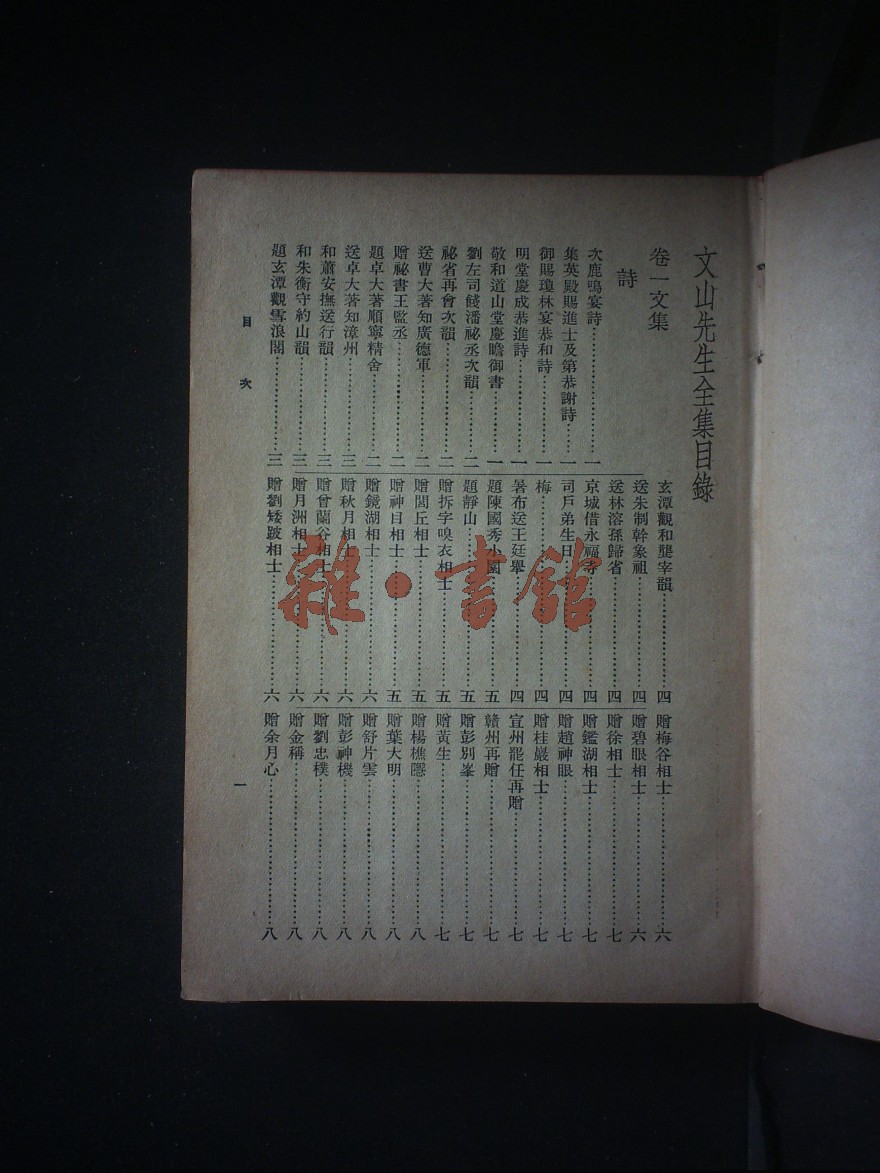 文山先生全集目錄
卷一文集
詩
次鹿鳴宴詩……一
集英殿賜進士及第恭謝詩……一
御賜瓊林宴恭和詩……一
明堂慶成恭進詩……一
敬和道山堂慶瞻御書……一
劉左司餞潘祕丞次韻……二
祕省再會次韻……二
送曹大著知廣德軍……二
贈祕書王監丞……二
題卓大著順寧精舍……二
送卓大著知漳州……三
和蕭安撫送行韻……三
和朱衡守約山韻……三
題玄潭觀雪浪閣……三
玄潭觀和龔宰韻……四
送朱制幹象祖……四
送林溶孫歸省……四
京城借永福寺……四
司戶弟生日……四
梅……四
暑布送王廷舉……四
題陳國秀小園……五
題靜山……五
贈拆字嗅衣相士……五
贈閭丘相士……五
贈神目相士……五
贈鏡湖相士……六
贈秋月相士……六
贈曾蘭谷相士……六
贈月洲相士……六
贈劉矮跛相士……六
贈梅谷相士……六
贈碧眼相士……六
贈徐相士……七
贈鑑湖相士……七
贈趙神眼……七
贈桂巖相士……七
宣州罷任再贈……七
贛州再贈……七
贈彭別峯……七
贈黃生……七
贈楊樵隱……八
贈葉大明……八
贈舒片雲……八
贈彭神機……八
贈劉忠樸……八
贈金稱……八
贈余月心……八
目次
一
雜·書館